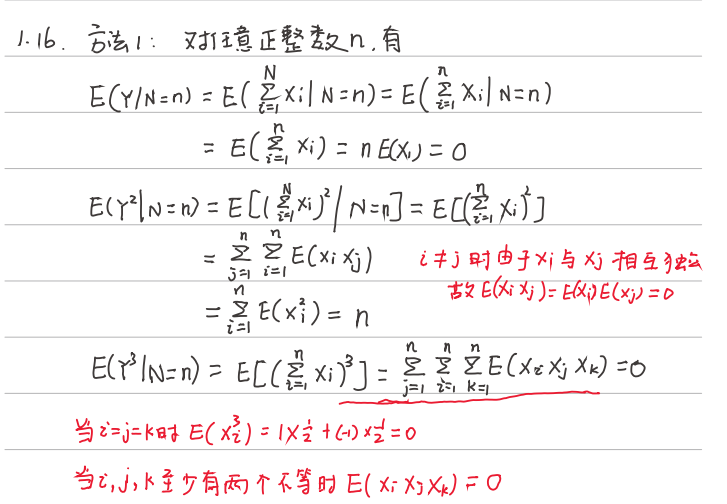 1.16. 方法1: 对任意正整数n,有
E(Y/N=n) = E(∑_{i=1}^{N} Xi | N=n) = E(∑_{i=1}^{n} Xi | N=n)
= E(∑_{i=1}^{n} Xi) = n E(Xi) = 0
E(Y²|N=n) = E[(∑_{i=1}^{N} Xi)² / N=n] = E[(∑_{i=1}^{n} Xi)²]
= ∑_{j=1}^{n} ∑_{i=1}^{n} E(Xi Xj) i≠j时由于Xi与Xj相互独立
故E(Xi Xj)=E(Xi)E(Xj)=0
= ∑_{i=1}^{n} E(Xi²) = n
E(Y³|N=n) = E[(∑_{i=1}^{n} Xi)³] = ∑_{j=1}^{n} ∑_{i=1}^{n} ∑_{k=1}^{n} E(Xi Xj Xk) = 0
当i=j=k时 E(Xi³) = 1×1/2 + (-1)×1/2 = 0
当i,j,k至少有两个不等时 E(Xi Xj Xk) = 0